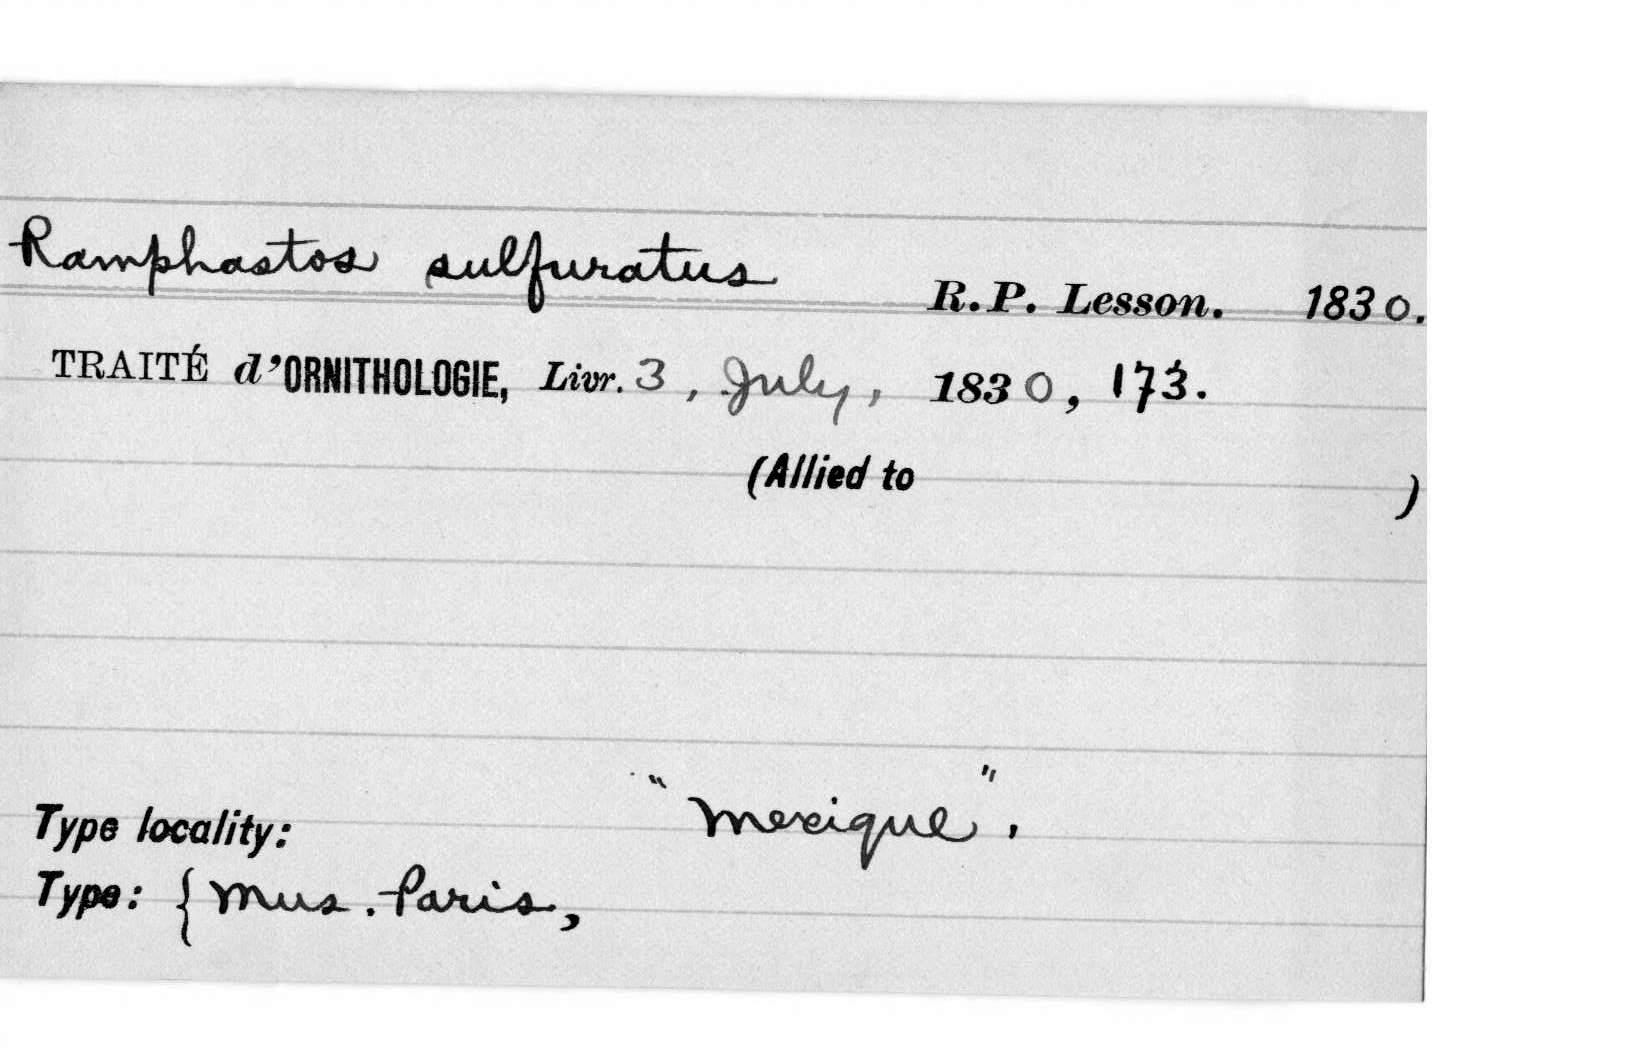 Ramphastos sulfuratus R. P. Lesson. 1830.
TRAITÉ d'ORNITHOLOGIE, Livr. 3, July, 1830, 173.
(Allied to )
Type locality: "Mexique".
Type: { Mus. Paris,